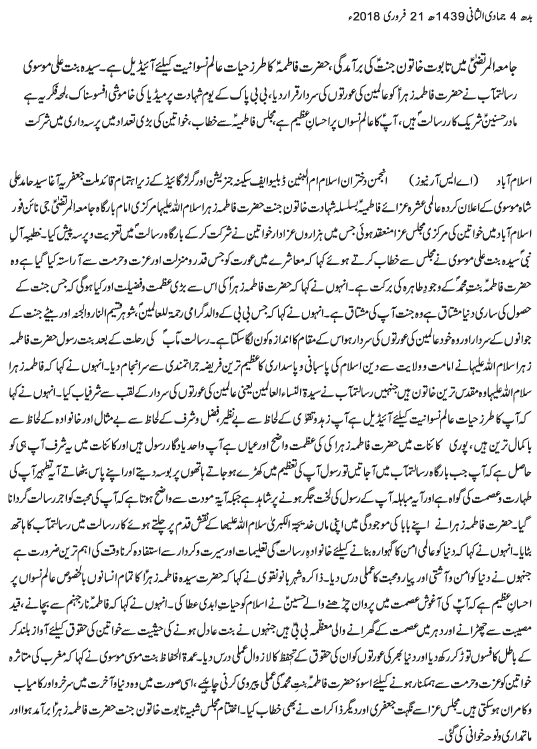 بدھ 4 جمادی الثانی 1439ھ 21 فروری 2018ء
جامعہ المرتضیٰؑ میں تابوت خاتون جنت کی برآمدگی، حضرت فاطمہؑ کا طرز حیات عالم نسوانیت کیلئے آئیڈیل ہے۔ سیدہ بنت علی موسوی
رسالتمآب نے حضرت فاطمہ زہراؑ کو عالمین کی عورتوں کی سردار قرار دیا، بی بی پاک کے یوم شہادت پر میڈیا کی خاموشی افسوسناک، لمحہ فکریہ ہے
مادر حسنینؑ شریک کار رسالت ہیں، آپؑ کا عالم نسواں پر احسان عظیم ہے، مجلس فاطمیہؑ سے خطاب، خواتین کی بڑی تعداد میں پرسہ داری میں شرکت
اسلام آباد (اے ایس آر نیوز) انجمن دختران اسلام ام البنینؑ ڈبلیو ایف سکینہ جنریشن اور گرلز گائیڈ کے زیر اہتمام قائد ملت جعفریہ آغا سید حامد علی
شاہ موسوی کے اعلان کردہ عالمی عشرہ عزائے فاطمیہؑ بسلسلہ شہادت خاتون جنت حضرت فاطمہ زہرا سلام اللہ علیہا مرکزی امام بارگاہ جامعہ المرتضیٰ جی نائن فور
اسلام آباد میں خواتین کی مرکزی مجلس عزا منعقد ہوئی جس میں ہزاروں عزادار خواتین نے شرکت کر کے بارگاہ رسالت میں تعزیت و پرسہ پیش کیا۔ خطیبہ آل
نبیؐ سیدہ بنت علی موسوی نے مجلس سے خطاب کرتے ہوئے کہا کہ معاشرے میں عورت کو جس قدر و منزلت اور عزت و حرمت سے آراستہ کیا گیا ہے وہ
حضرت فاطمہؑ بنت محمدؐ کے وجود طاہرہ کی برکت ہے۔ انہوں نے کہا کہ حضرت فاطمہ زہراؑ کی اس سے بڑی عظمت و فضیلت اور کیا ہوگی کہ جس جنت کے
حصول کی ساری دنیا مشتاق ہے وہ جنت آپ کی مشتاق ہے۔ انہوں نے کہا کہ جس بی بی کے والد گرامی رحمۃ للعالمینؐ، شوہر قسیم النار والجنہ اور بیٹے جنت کے
جوانوں کے سردار اور وہ خود عالمین کی عورتوں کی سردار ہو اس کے مقام کا اندازہ کون لگا سکتا ہے۔ رسالت مآبؐ کی رحلت کے بعد بنت رسول حضرت فاطمہ
زہرا سلام اللہ علیہا نے امامت و ولایت سے دین اسلام کی پاسبانی و پاسداری کا عظیم ترین فریضہ جراتمندی سے سرانجام دیا۔ انہوں نے کہا کہ حضرت فاطمہ زہرا
سلام اللہ علیہا وہ مقدس ترین خاتون ہیں جنہیں رسالتمآب نے سیدۃ النساء العالمین یعنی عالمین کی عورتوں کی سردار کے لقب سے شرفیاب کیا۔ انہوں نے کہا
کہ آپ کا طرز حیات عالم نسوانیت کیلئے آئیڈیل ہے آپ زہد و تقویٰ کے لحاظ سے بے نظیر، فضل و شرف کے لحاظ سے بے مثال اور خانوادہ کے لحاظ سے
باکمال ترین ہیں، پوری کائنات میں حضرت فاطمہ زہرا کی عظمت واضح اور عیاں ہے آپ واحد یادگار رسول ہیں اور کائنات میں یہ شرف آپ ہی کو
حاصل ہے کہ آپ جب بارگاہ رسالتمآب میں آ جاتیں تو رسول آپ کی تعظیم میں کھڑے ہو جاتے ہاتھوں پر بوسہ دیتے اور اپنے پاس بٹھاتے آیہ تطہیر آپ کی
طہارت و عصمت کی گواہ ہے اور آیہ مباہلہ آپ کے رسول کی لخت جگر ہونے پر شاہد ہے جبکہ آیہ مودت سے واضح ہوتا ہے کہ آپ کی محبت کو اجر رسالت گردانا
گیا۔ حضرت فاطمہ زہرا نے اپنے بابا کی موجودگی میں اپنی ماں خدیجۃ الکبریٰ سلام اللہ علیہا کے نقش قدم پر چلتے ہوئے کار رسالت میں رسالتمآب کا ہاتھ
بٹایا۔ انہوں نے کہا کہ دنیا کو عالمی امن کا گہوارہ بنانے کیلئے خانوادہ رسالت کی تعلیمات اور سیرت و کردار سے استفادہ کرنا وقت کی اہم ترین ضرورت ہے
جنہوں نے دنیا کو امن و آشتی اور پیار و محبت کا عملی درس دیا۔ ذاکرہ شہر بانو نقوی نے کہا کہ حضرت سیدہ فاطمہ زہراؑ کا تمام انسانوں بالخصوص عالم نسواں پر
احسان عظیم ہے کہ آپ کی آغوش عصمت میں پروان چڑھنے والے حسینؑ نے اسلام کو حیات ابدی عطا کی۔ انہوں نے کہا کہ فاطمہؑ نار جہنم سے بچانے، قید
مصیبت سے چھڑانے اور دہر میں عصمت کے گھرانے والی معظمہ بی بی ہیں جنہوں نے بنت عادل ہونے کی حیثیت سے خواتین کی حقوق کیلئے آواز بلند کر
کے باطل کا فسوں توڑ کر رکھ دیا اور دنیا بھر کی عورتوں کو ان کی حقوق کے تحفظ کا لازوال عملی درس دیا۔ عمدۃ الحفاظ بنت موسیٰ موسوی نے کہا کہ مغرب کی متاثرہ
خواتین کو عزت و حرمت سے ہمکنار ہونے کیلئے اسوۂ حضرت فاطمہؑ بنت محمدؐ کی عملی پیروی کرنی چاہیے، اسی صورت میں وہ دنیا و آخرت میں سرخرو اور کامیاب
و کامران ہو سکتی ہیں۔ مجلس عزا سے نگہت جعفری اور دیگر ذاکرات نے بھی خطاب کیا۔ اختتام مجلس شبیہ تابوت خاتون جنت حضرت فاطمہ زہراؑ برآمد ہوا اور
ماتمداری و نوحہ خوانی کی گئی۔